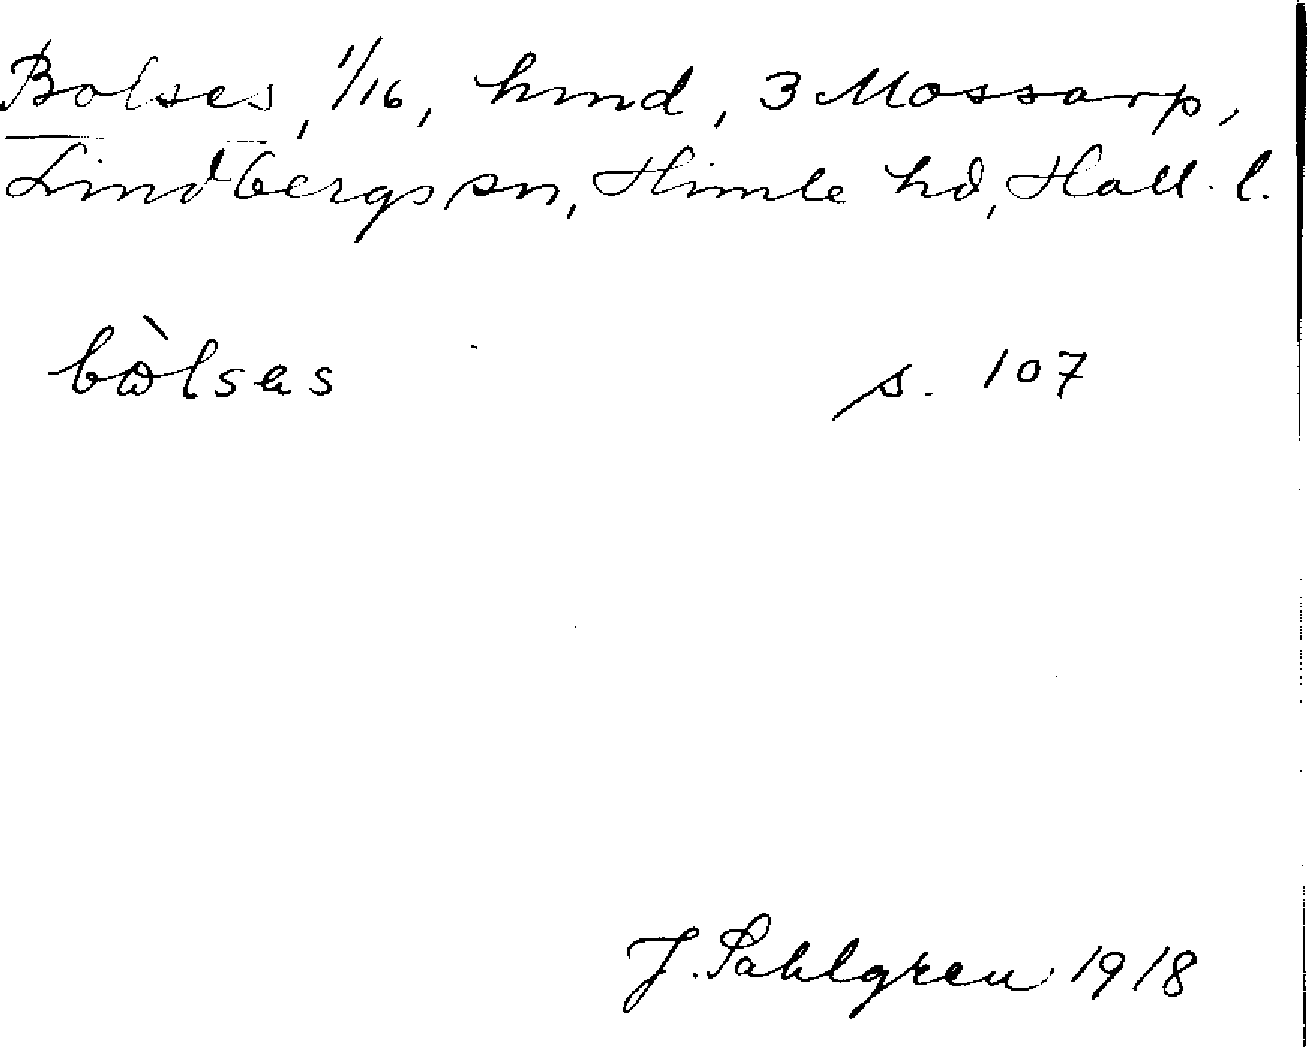 Bolses, 1/16, hmd, 3 Mossarp,
Lindbergs sn, Himle hd, Hall. l.
bòlsas s. 107
J. Sahlgren 1918